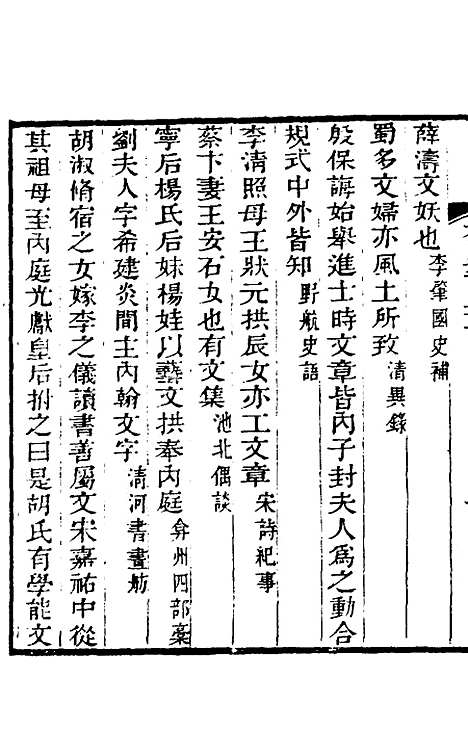 薛濤文妖也李肇國史補
蜀多文婦亦風土所致清異錄
殷保誨始舉進士時文章皆內子封夫人爲之動合
規式中外皆知野航史話
李清照母王狀元拱辰女亦工文章宋詩紀事
蔡卞妻王安石女也有文集池北偶談
寧后楊氏后妹楊娃以藝文拱奉內庭弇州四部稾
劉夫人字希建炎間主內翰文字清河書畫舫
胡淑脩宿之女嫁李之儀讀書善屬文宋嘉祐中從
其祖母至內庭光獻皇后拊之曰是胡氏有學能文